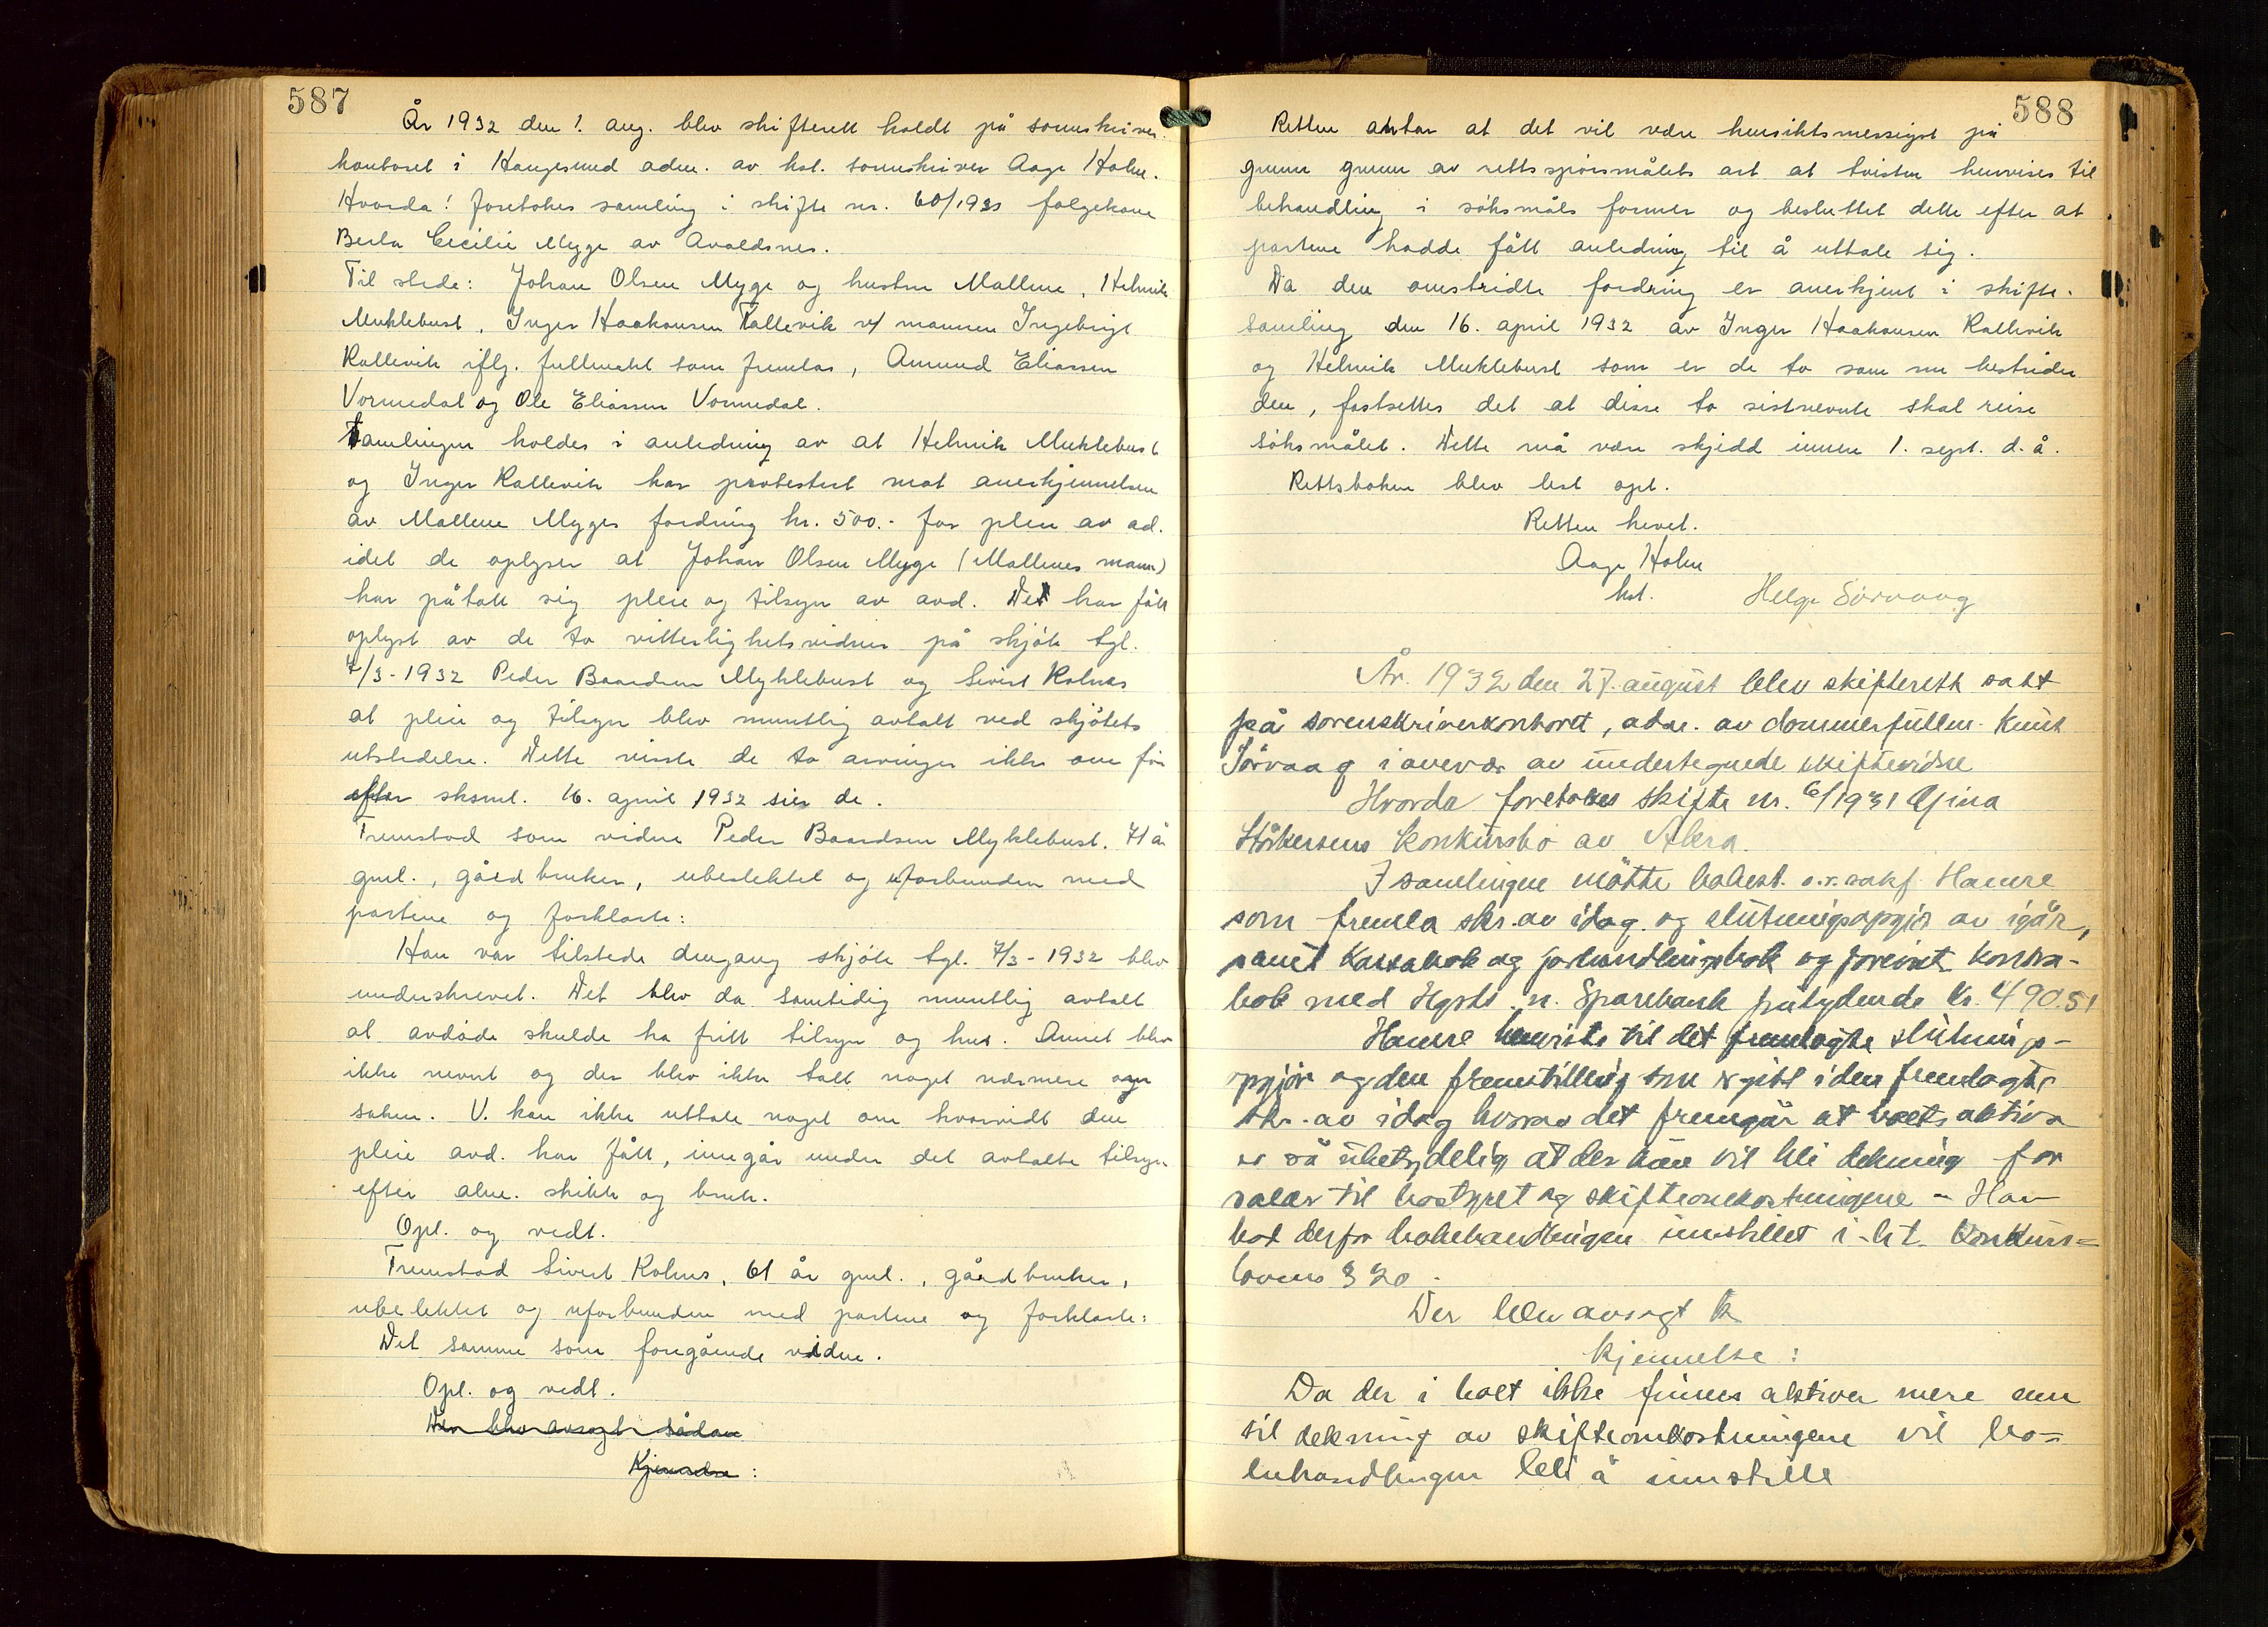 587
År 1932 den 1. aug. blev skifterett holdt på sorenskriver-
kontoret i Haugesund adm. av kst. sorenskriver Aage Holm.
Hvorda: foretokes samling i skifte nr. 60/1931 følgekone
Berta Cecilie Mygge av Avaldsnes.
Til stede: Johan Olsen Myge og hustru Mallene, Helmik
Muklebust, Inger Haakonsen Kallevik v/ mannen Ingebrigt
Kallevik iflg. fullmakt som fremlas, Amund Eliassen
Vormedal og Ole Eliassen Vormedal.
Samlingen holdes i anledning av at Helmik Muklebust
og Inger Kallevik har protestert mot anerkjennelsen
av Mallene Mygges fordring kr. 500.- for pleie av ad.
idet de oplyser at Johan Olsen Myge (Mallenes mann)
har påtatt sig pleie og tilsyn av avd. De har fått
oplyst av de to vitterlighetsvidner på skjöte tgl.
7/3-1932 Peder Baardsen Myklebust og Sivert Kolnes
at pleie og tilsyn blev muntlig avtalt ved skjötets
utstedelse. Dette visste de to arvinger ikke om før
efter sksml. 16. april 1932 sier de.
Fremstod som vidne Peder Baardsen Myklebust. 71 år
gml., gårdbruker, ubeslektet og uforbunden med
partene og forklarte:
Han var tilstede dengang skjöte tgl. 7/3-1932 blev
underskrevet. Det blev da samtidig muntlig avtalt
at avdöde skulde ha fritt tilsyn og hus. Annet blev
ikke nevnt og der blev ikke talt noget nærmere om
saken. V. kan ikke uttale noget om hvorvidt den
pleie avd. har fått, inngår under det avtalte tilsyn
efter alm. skikk og bruk.
Opl. og vedt.
Fremstod Sivert Kolnes, 61 år gml., gårdbruker,
ubeslektet og uforbunden med partene og forklarte:
Det samme som foregående vidne.
Opl. og vedt.
Der blev avsagt sådan
Kjennelse:
588
Retten antar at det vil være hensiktsmessigst på
grunn grunn av rettsspörsmålets art at tvisten henvises til
behandling i söksmåls former og besluttet dette efter at
partene hadde fått anledning til å uttale sig.
Da den omstridte fordring er anerkjent i skifte-
samling den 16. april 1932 av Inger Haakonsen Kallevik
og Helmik Muklebust som er de to som nu bestrider
den, fastsettes det at disse to sistnevnte skal reise
söksmålet. Dette må være skjedd innen 1. sept. d.å.
Rettsboken blev lest opt.
Retten hevet.
Aage Holm
kst. Helge Sørvaag
År 1932 den 27. august blev skifterett satt
på sorenskriverkontoret, adm. av dommerfullm. Knut
Sörvaag i overvær av undertegnede skiftevidne
Hvorda foretokes skifte nr. 6/1931 Gina
konkursbo av Åkra.
I samlingen mötte bobest. o.r.sakf. Hamre
som fremla skr. av idag og slutningsopgjör av igår,
samt kassabok og forhandlingsbok og forevist kontra-
bok med Hgsds n. Sparebank pålydende kr. 490.51
Hamre henviste til det fremlagte slutnings-
opgjör og den fremstilling som er gitt i den fremlagte
skr. av idag hvorav det fremgår at boets aktiva
er så ubetydelig at der kun vil bli dekning for
salær til bostyret og skifteomkostningene - Han
bad derfor bobehandlingen innstillet i h.t. konkurs=
lovens § 20.
Der blev avsagt k
kjennelse:
Da der i boet ikke finnes aktiver mere enn
til dekning av skifteomkostningene vil bo=
behandlingen bli å innstille